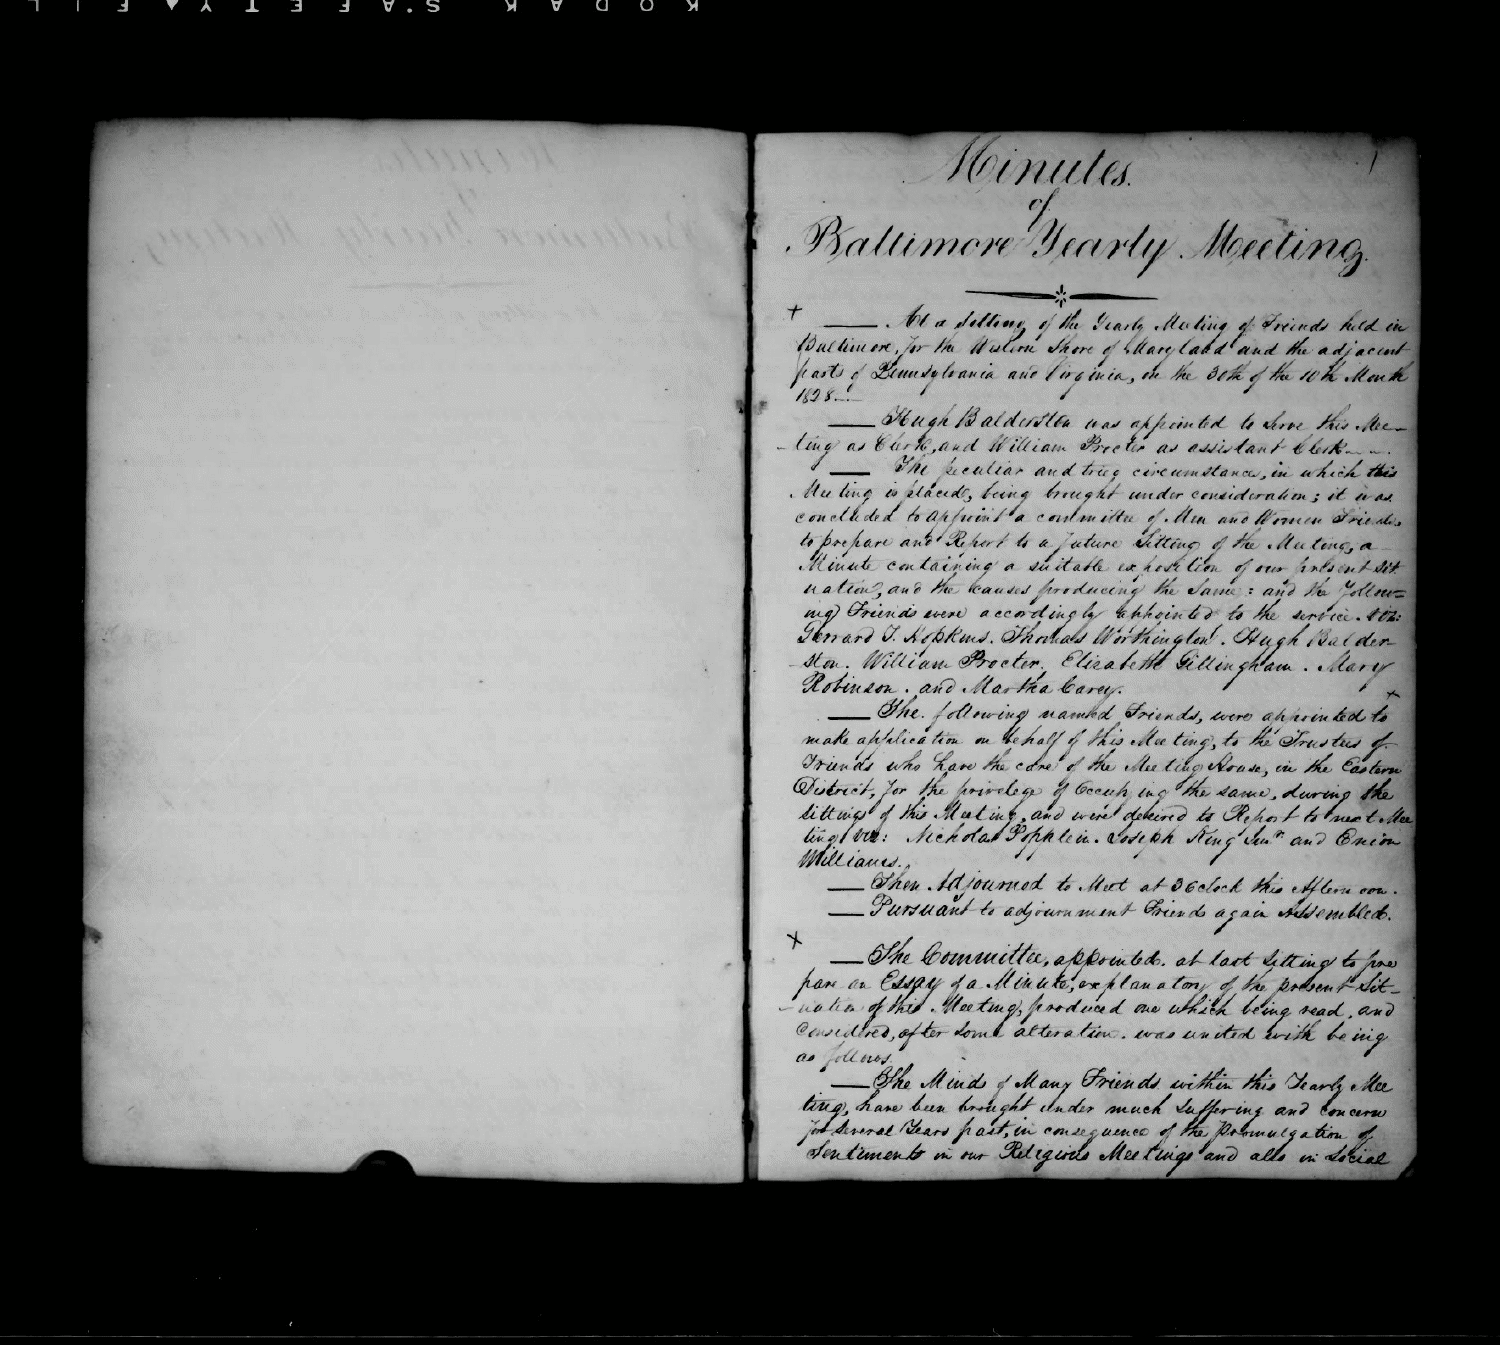 KODAK SAFETY FIL
1
Minutes.
of
Baltimore Yearly Meeting.
At a Sitting of the Yearly Meeting of Friends held in
Baltimore, for the Western Shore of Maryland and the adjacent
parts of Pennsylvania and Virginia, on the 30th of the 10th Month
1828.
Hugh Balderston was appointed to serve this Mee-
-ting as Clerk, and William Procter as assistant Clerk
The peculiar and trying circumstances, in which this
Meeting is placed, being brought under consideration; it was
concluded to appoint a committee of Men and Women Friends
to prepare and Report to a future Sitting of the Meeting, a
Minute containing a suitable exposition of our present sit
uation, and the causes producing the Same: and the follow=
ing Friends were accordingly appointed to the service. viz:
Gerrard T. Hopkins. Thomas Worthington. Hugh Balder
-ston. William Procter. Elizabeth Gillingham. Mary
Robinson. and Martha Carey.
The following named Friends, were appointed to
make application on behalf of this Meeting, to the Trustees of
Friends who have the care of the Meeting House, in the Eastern
District, for the privelege of Occupying the same, during the
sittings of this Meeting, and were desired to Report to next Mee
ting viz: Nicholas Popplein. Joseph King Junr. and Enion
Williams.
Then Adjourned to Meet at 3 Oclock this Afternoon.
Pursuant to adjournment Friends again Assembled.
The Committee, appointed. at last Sitting to pre
pare an Essay of a Minute, explanatory of the present Sit-
-uation of this Meeting, produced one which being read, and
Considered, after some alteration. was united with being
as follows.
The Minds of Many Friends within this Yearly Mee
ting, have been brought under much Suffering and concern
for Several Years past, in consequence of the promulgation of
Sentiments in our Religious Meetings and also in Social